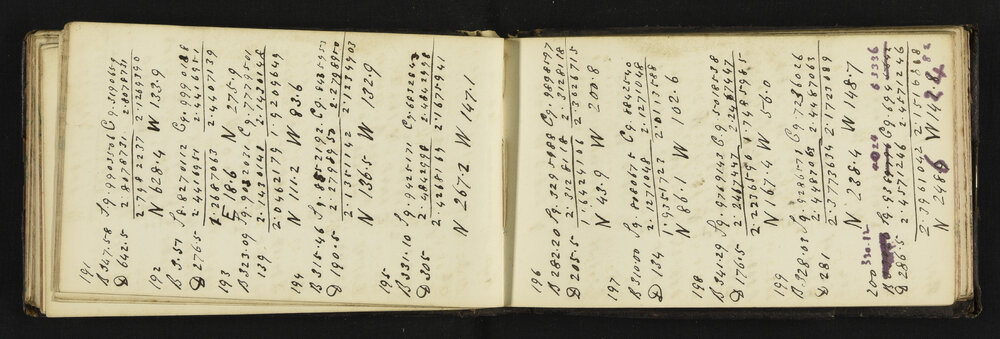 191
B 347.58 Sg. 9903506 Cg. 3189659
D 642.5 2.8078731 2.8078731
2.7982237 2.1268390
N 628.4 W 133.9
192
B 3.51 Sg. 8.8270112 Cg. 9990188
D 276.5 2.4416951 2.4416951
1.2687063 2.4407139
E 18.6 N 275.9
193
B 323.09 Sg. 9032031 Cg. 7779501
139 2.1430148 2.1430148
2.0462179 1.9209649
N 111.2 W 83.6
194
B 315.46 Sg. 8552192 Cg. 8435953
D 190.5 2.2798950 2.2798950
2.1351142 2.1234903
N 136.5 W 132.9
195
B 331.10 Sg. 9425171 Cg. 6832843
D 305 2.4842998 2.4842998
2.4268169 2.1675841
N 267.2 W 147.1
196
B 282.20 Sg. 3295988 Cg. 9898597
D 205.5 2.3128118 2.3128118
2.6424106 2.3026715
N 43.9 W 200.8
197
B 310.00 Sg. 8080675 Cg. 8842540
D 134 2.1271048 2.1271048
1.9351723 2.0113588
N 86.1 W 102.6
198
B 341.29 Sg. 9769143 Cg. 5018538
D 176.5 2.2467447 2.2467447
2.2236590 1.7485985
N 167.4 W 56.0
199
B 328.03 Sg. 9286571 Cg. 7236026
D 281 2.4487063 2.4487063
2.3773634 2.1723089
N 238.4 W 148.7
200 330.12 5336
B Sg. Cg.
D 286.5 2.4571246 2.4571246
2.3971042 2.15167
N 248.6 W 142